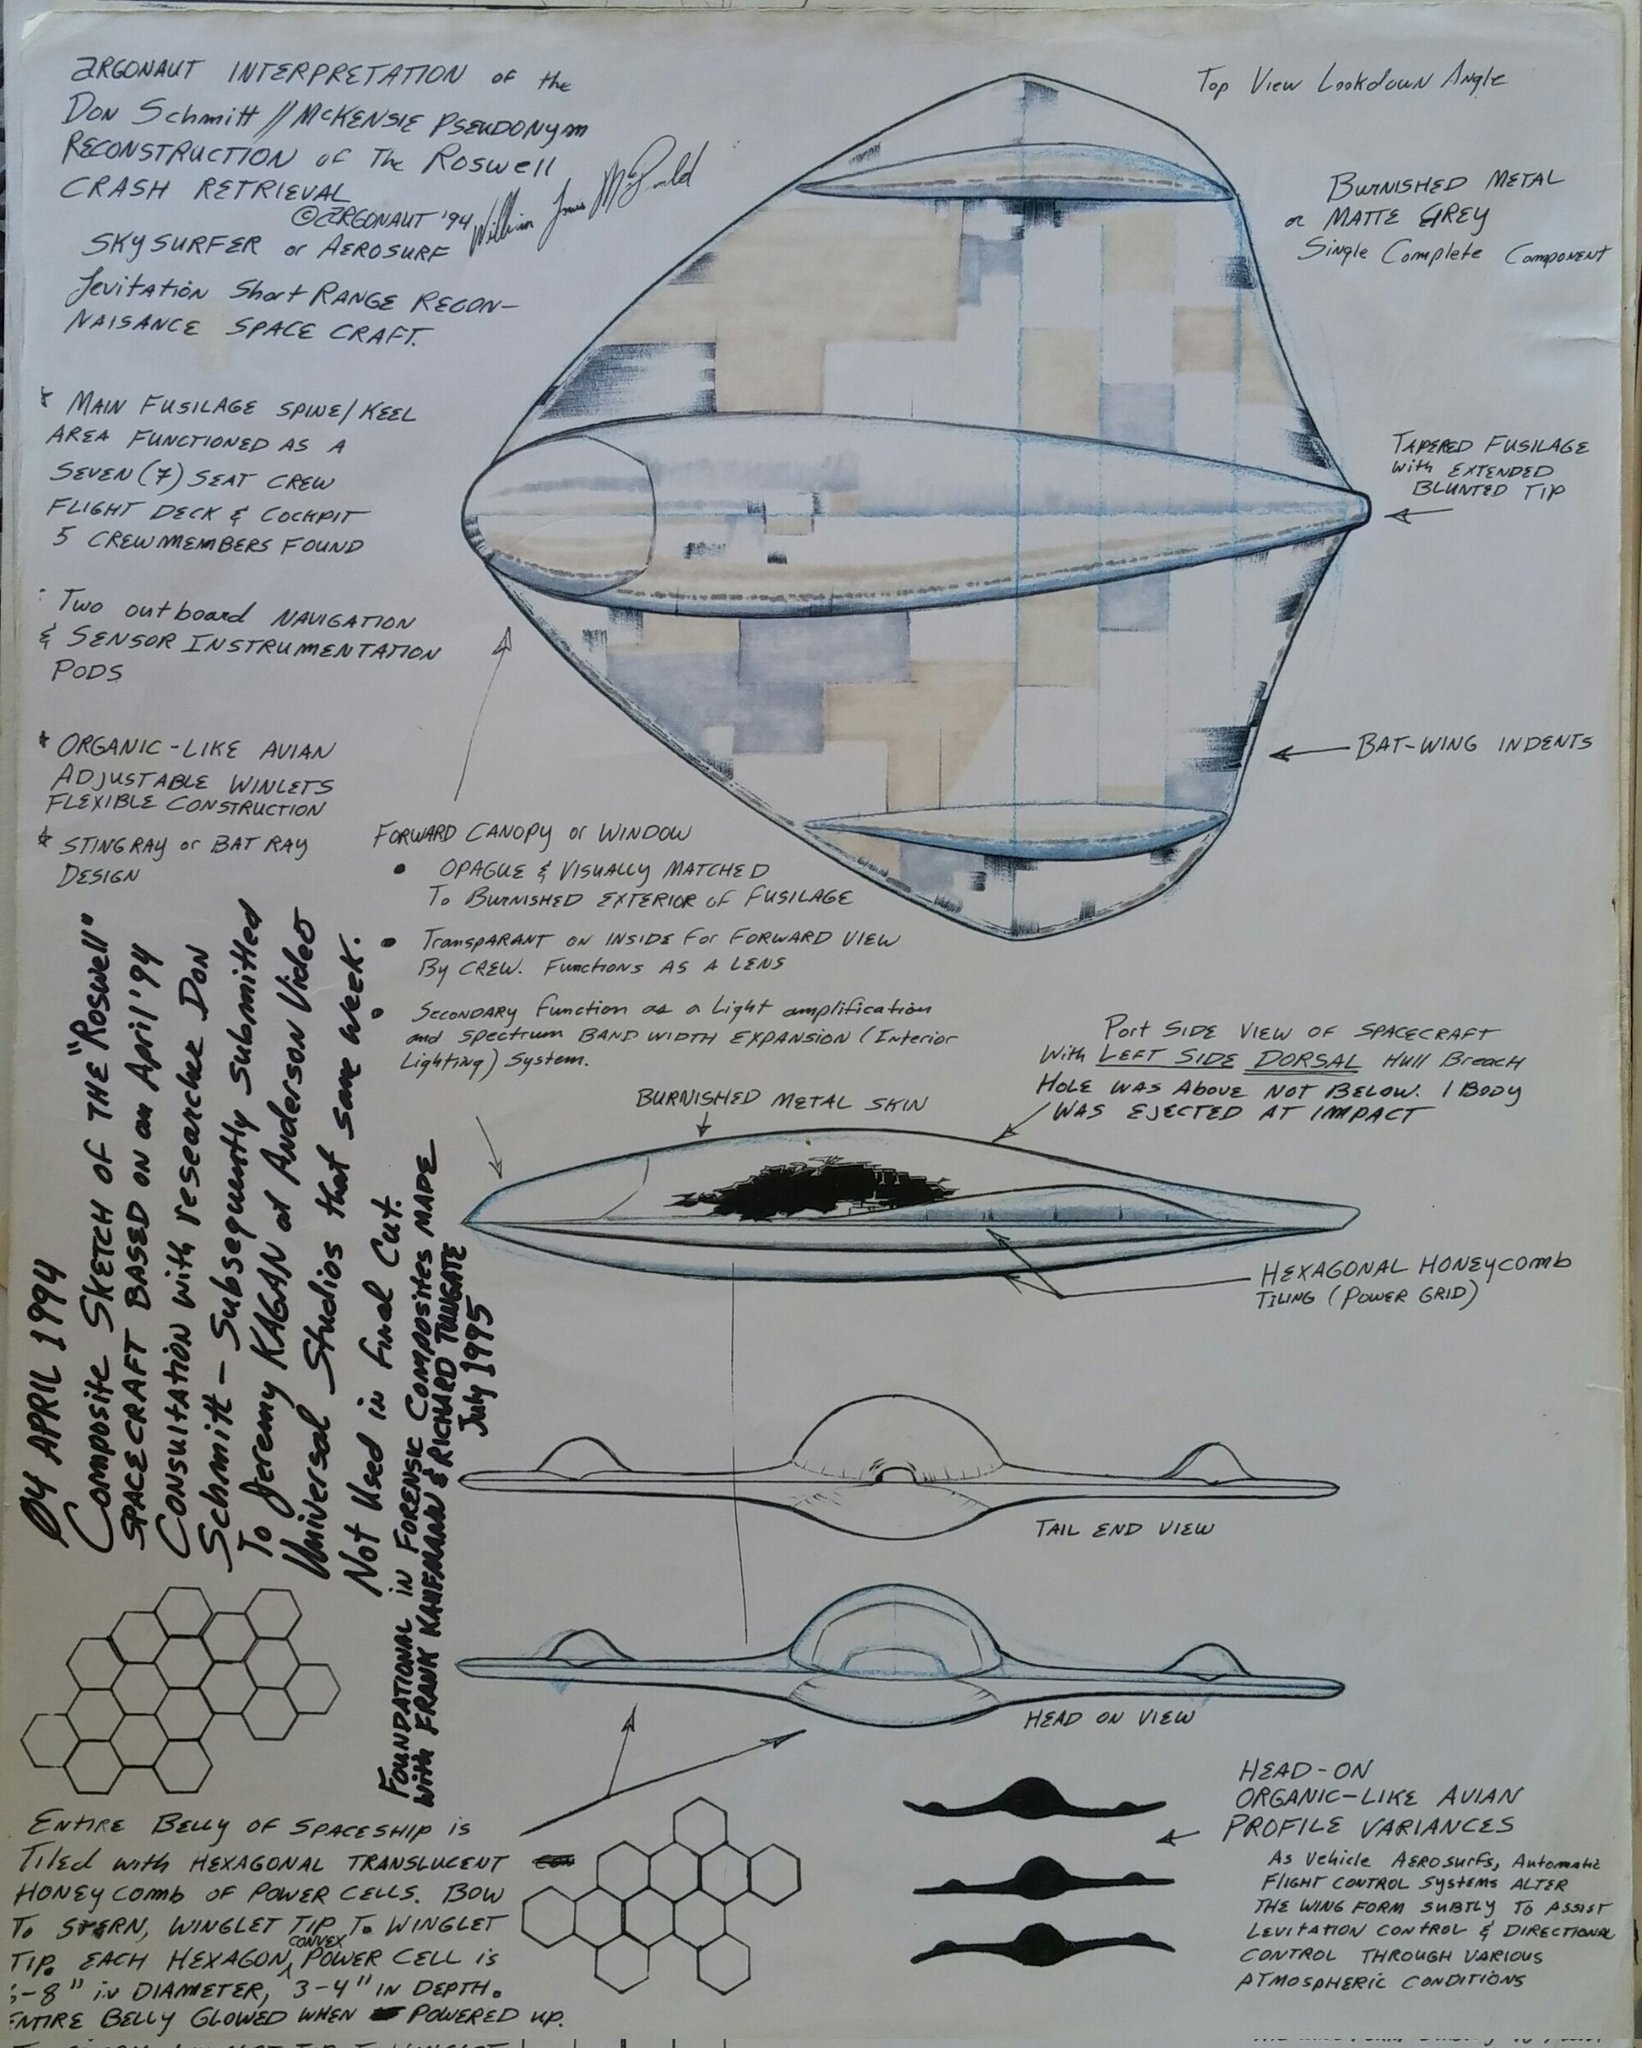 ARGONAUT INTERPRETATION of the
Don Schmitt // McKENSIE PSEUDONYM
RECONSTRUCTION of The Roswell
CRASH RETRIEVAL
© ARGONAUT '94
SKYSURFER or AEROSURF
Levitation Short RANGE RECON-
NAISANCE SPACE CRAFT.
* MAIN FUSILAGE SPINE/KEEL
AREA FUNCTIONED AS A
SEVEN (7) SEAT CREW
FLIGHT DECK & COCKPIT
5 CREWMEMBERS FOUND
Two outboard NAVIGATION
& SENSOR INSTRUMENTATION
PODS
* ORGANIC-LIKE AVIAN
ADJUSTABLE WINLETS
FLEXIBLE CONSTRUCTION
* STINGRAY or BAT RAY
DESIGN
Top View Lookdown Angle
BURNISHED METAL
or MATTE GREY
Single Complete Component
TAPERED FUSILAGE
with EXTENDED
BLUNTED TIP
BAT-WING INDENTS
FORWARD CANOPY or WINDOW
• OPAGUE & VISUALLY MATCHED
To BURNISHED EXTERIOR of FUSILAGE
• TransPARANT ON INSIDE For FORWARD VIEW
By CREW. Functions AS A LENS
• SECONDARY Function as a Light amplification
and spectrum BAND WIDTH EXPANSION (Interior
Lighting) System.
04 APRIL 1994
Composite Sketch of THE "Roswell"
SPACECRAFT BASED on an April '94
Consultation with researcher Don
Schmitt - Subsequently Submitted
To Jeremy KAGAN at Anderson Video
Universal Studios that same week.
Not Used in Final Cut.
FOUNDATIONAL in FORENSIC Composites MADE
with FRANK KAUFMANN & RICHARD TUNGATE
July 1995
Port SIDE VIEW OF SPACECRAFT
With LEFT SIDE DORSAL Hull Breach
HOLE WAS ABOVE NOT BELOW. 1 BODY
WAS EJECTED AT IMPACT
BURNISHED METAL SKIN
HEXAGONAL HONEYcomb
TILING (POWER GRID)
TAIL END VIEW
HEAD ON VIEW
ENTIRE BELLY OF SPACESHIP is
Tiled with HEXAGONAL TRANSLUCENT
HONEYcomb OF POWER CELLS. BOW
To STERN, WINGLET TIP To WINGLET
TIP. EACH HEXAGON, CONVEX POWER CELL is
-8" in DIAMETER, 3-4" IN DEPTH.
ENTIRE BELLY GLOWED WHEN POWERED UP.
HEAD-ON
ORGANIC-LIKE AVIAN
PROFILE VARIANCES
As Vehicle AEROsurfs, Automatic
FLIGHT CONTROL Systems ALTER
THE WING FORM SUBTLY To ASSIST
LEVITATION CONTROL & DIRECTIONAL
CONTROL THROUGH VARIOUS
ATMOSPHERIC CONDITIONS